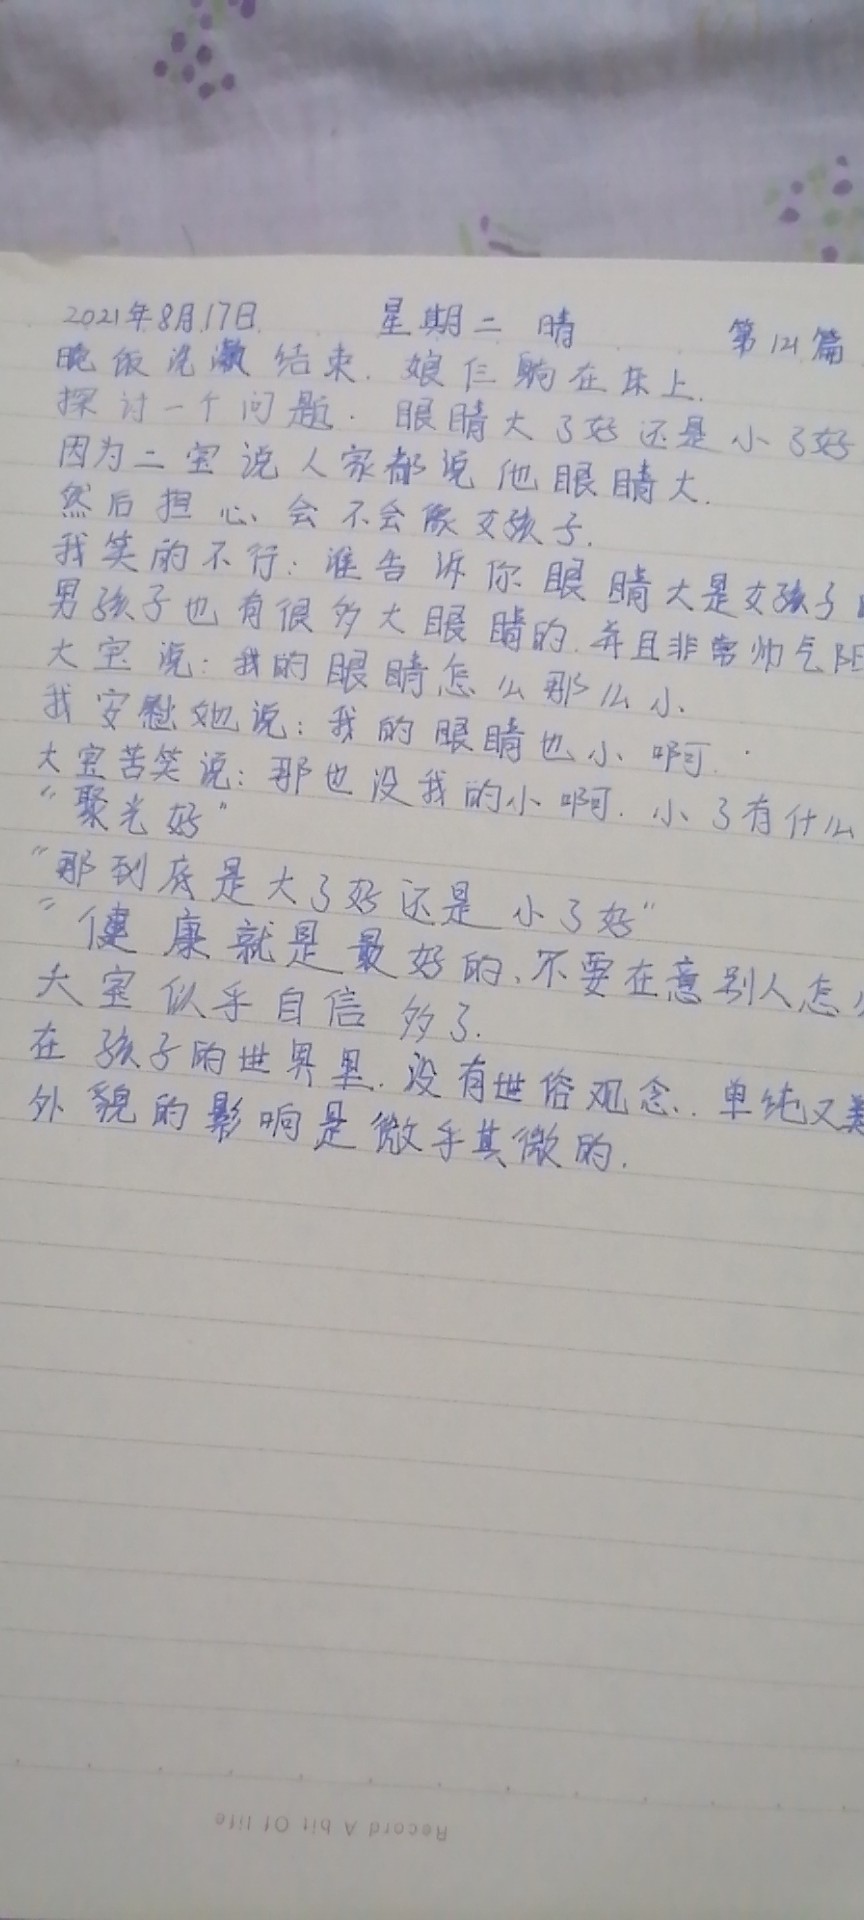 2021年8月17日 星期二 晴 第121篇
晚饭洗漱结束.娘仨躺在床上.
探讨一个问题.眼睛大了好还是小了好
因为二宝说人家都说他眼睛大.
然后担心会不会像女孩子.
我笑的不行:谁告诉你眼睛大是女孩子
男孩子也有很多大眼睛的.并且非常帅气
大宝说:我的眼睛怎么那么小.
我安慰她说:我的眼睛也小啊.
大宝苦笑说:那也没我的小啊.小了有什么
“聚光好”
“那到底是大了好还是小了好”
“健康就是最好的、不要在意别人怎
大宝似乎自信多了.
在孩子的世界里.没有世俗观念..单纯又
外貌的影响是微乎其微的.
Record A bit Of life